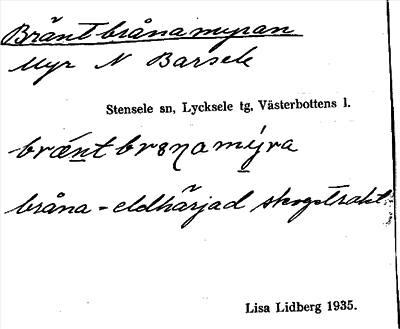 Bräntbrånamyran
Myr N Barsele
Stensele sn, Lycksele tg, Västerbottens l.
bråna - eldhärjad skogstrakt
Lisa Lidberg 1935.